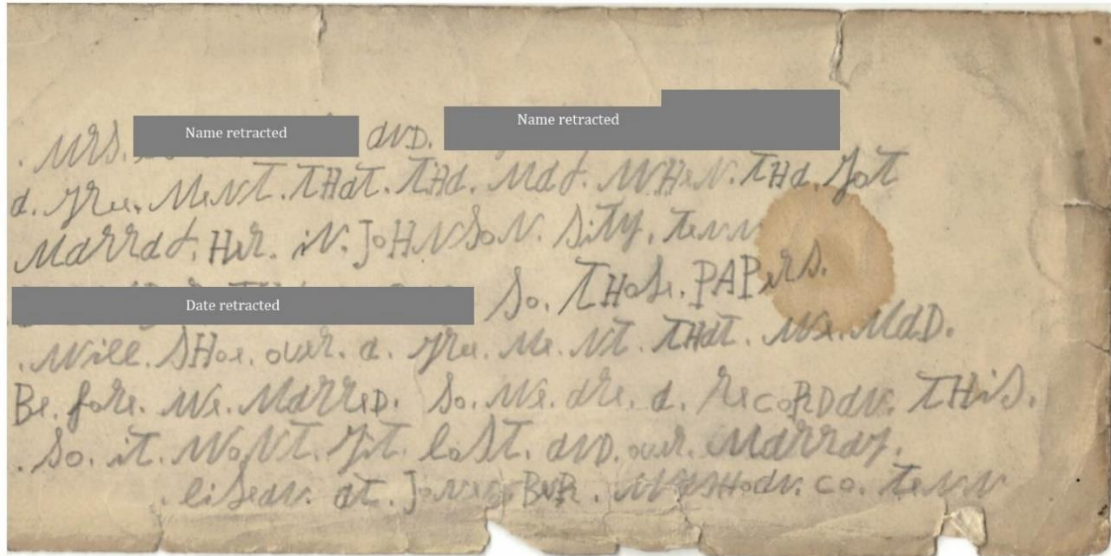 . Mrs. Name retracted and. Name retracted
a. gree. Ment. THat. THa. Mad. WHen. THa. got
Marrad. Her. in. JoHNSoN. Sity, tenn
Date retracted So. THose. PAPers.
. Will. SHoe. ouer. a. gree. Me. Nt. THat. We. MaD.
Be. fore. We. MarreD. So. We. are. a. RecoRDan. THiS.
. So. it. WoNt. git. loSt. anD. our. Marray.
liSean. at. JoNeS BuR. WaSHoan. co. tenn